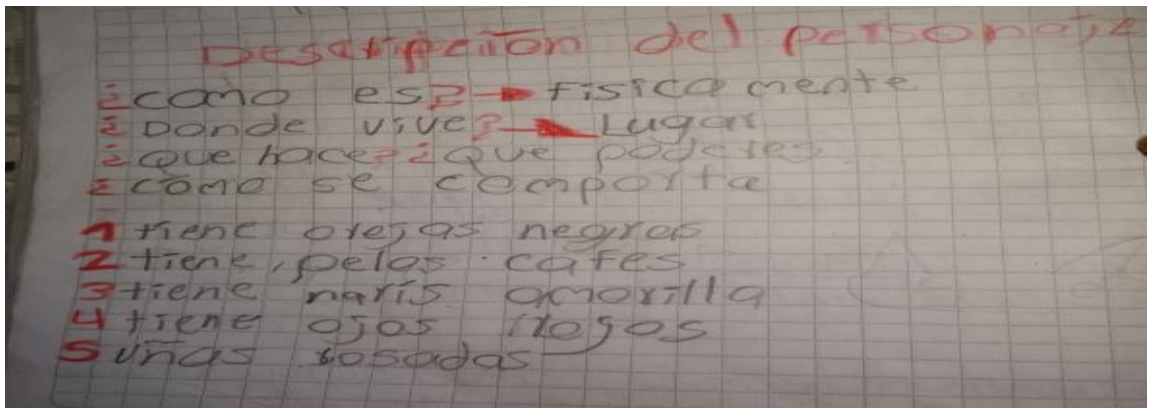 Descripción del personaje
¿como es? → fisicamente
¿Donde vive? → Lugar
¿Que hace? ¿Que poderes
¿como se comporta
1 tiene orejas negras
2 tiene, pelos cafes
3 tiene naris amorilla
4 tiene ojos rojos
5 uñas rosadas